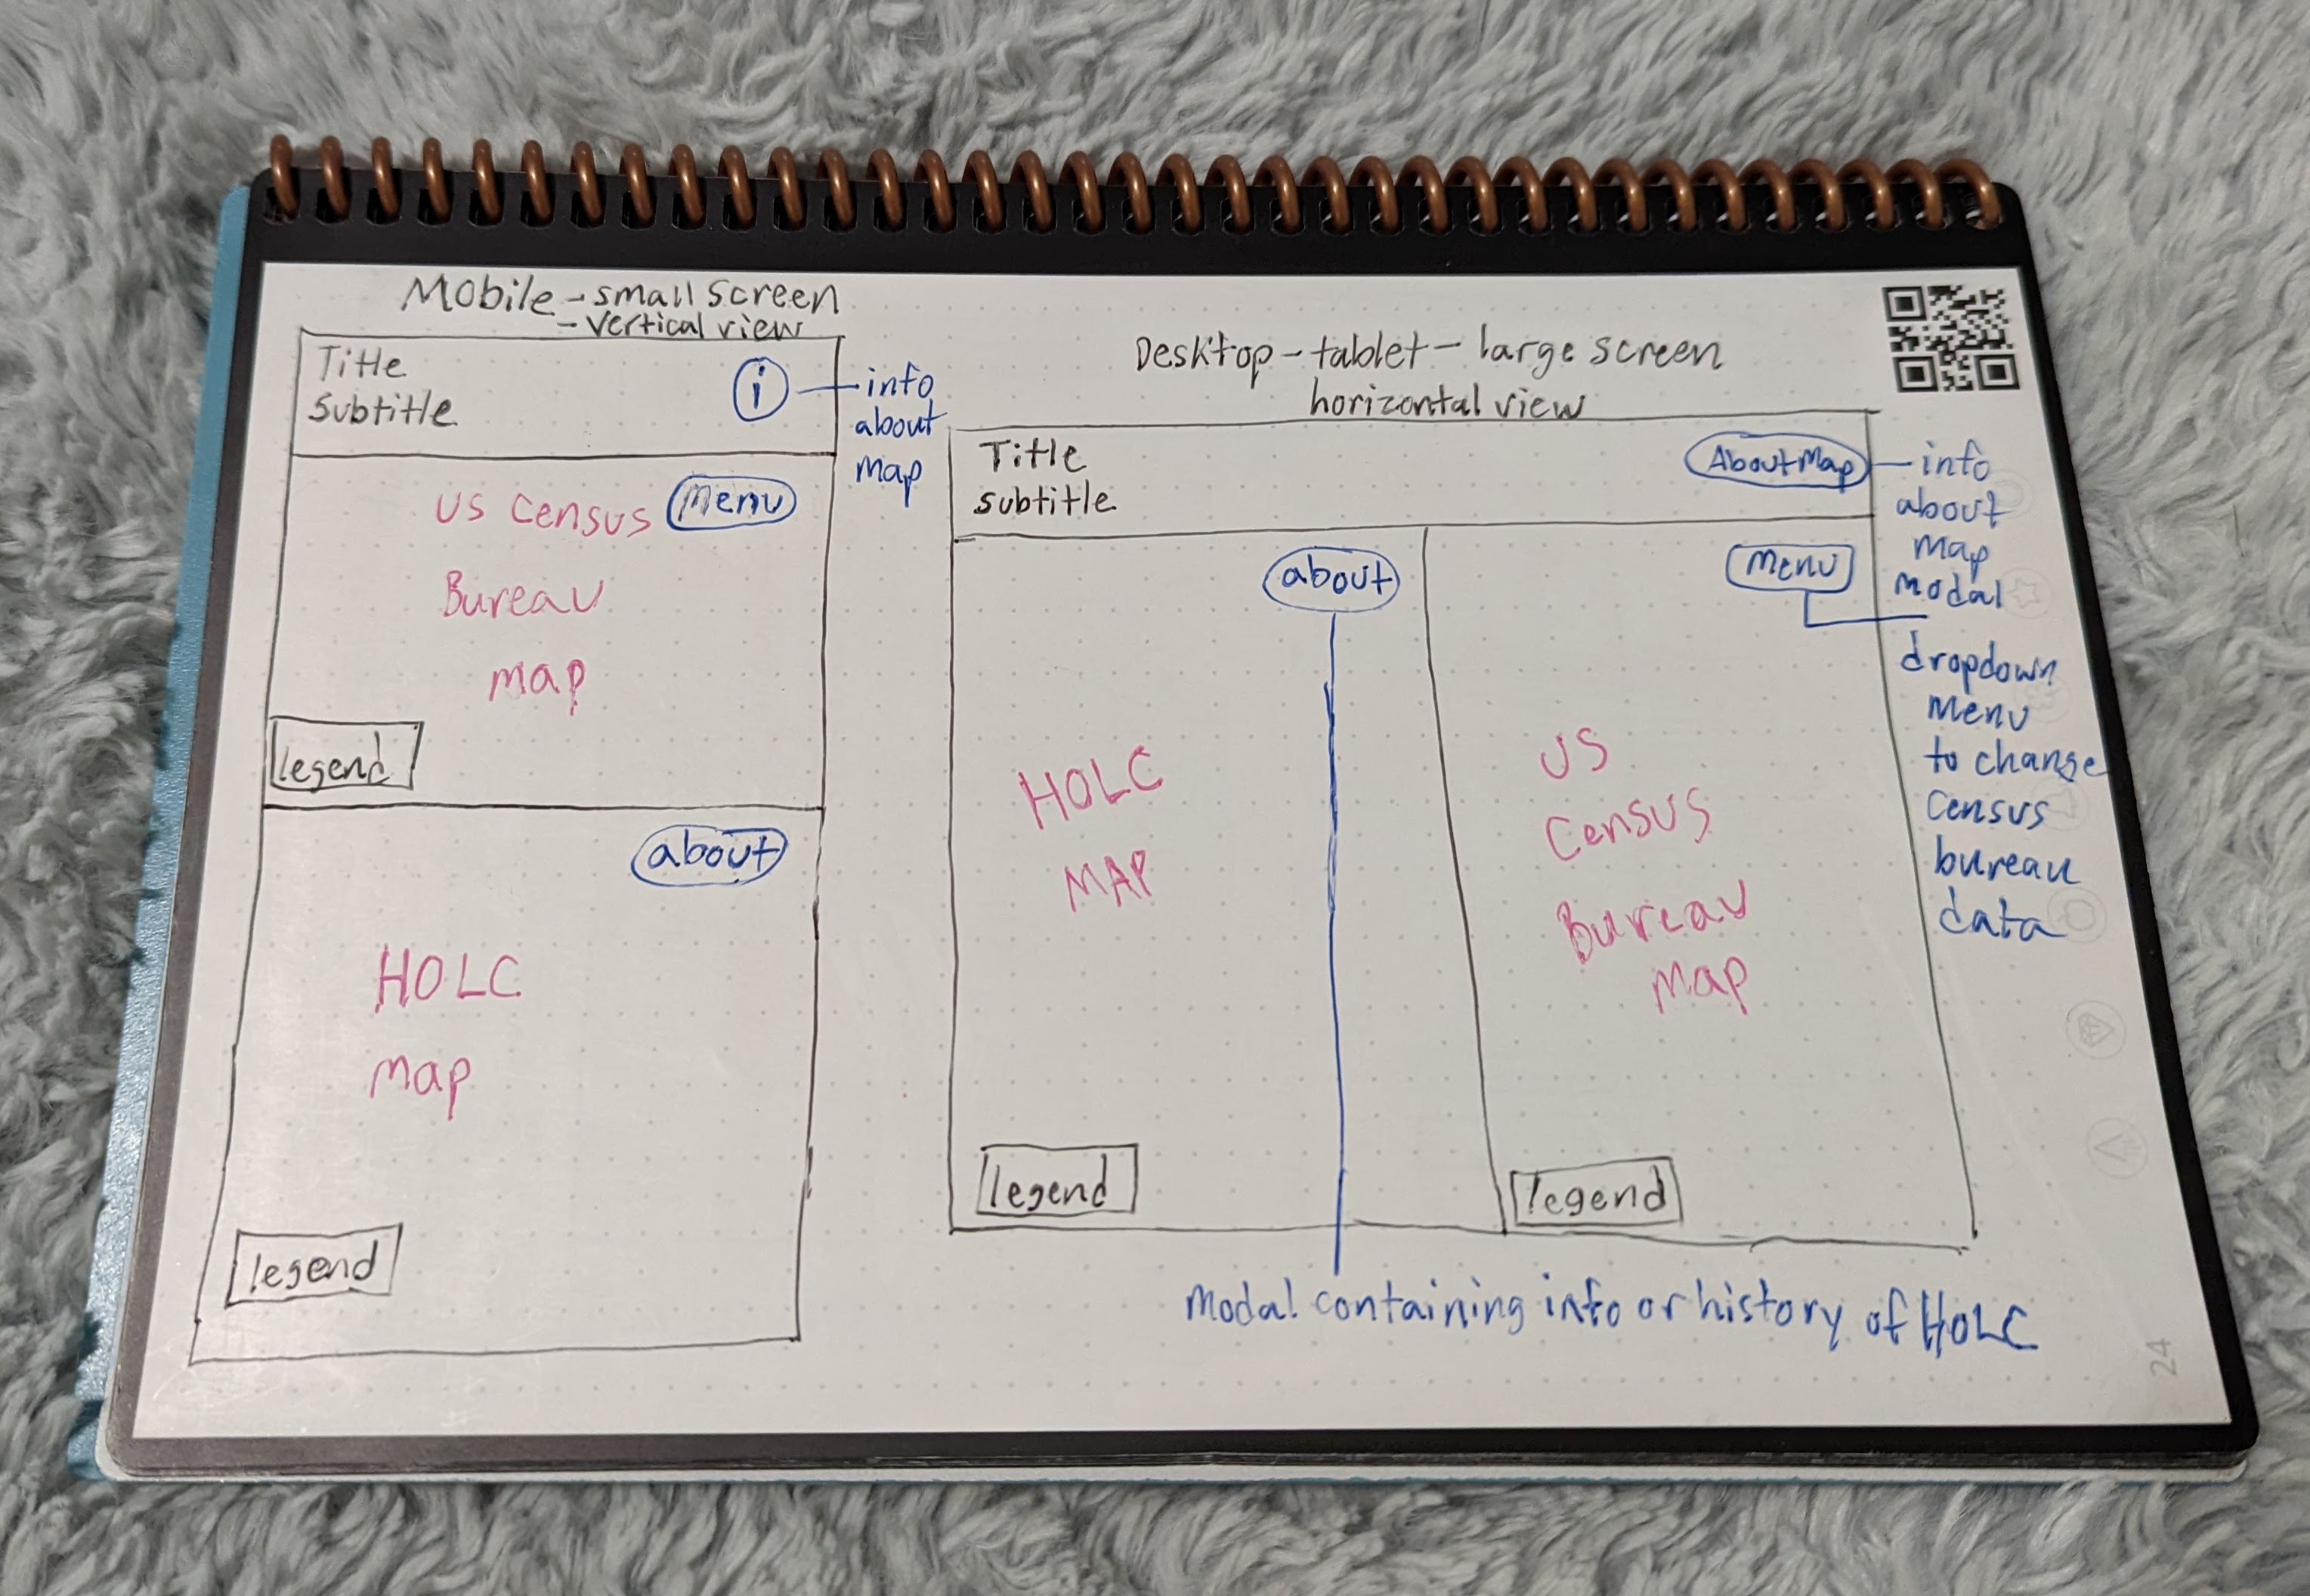 Mobile - small screen
- vertical view
Title
Subtitle
i
info
about
map
US Census
Menu
Bureau
map
legend
about
HOLC
map
legend
Desktop - tablet - large screen
horizontal view
Title
subtitle
About Map
info
about
map
modal
about
Menu
dropdown
menu
to change
census
bureau
data
HOLC
MAP
US
Census
Bureau
Map
legend
legend
modal containing info or history of HOLC
24